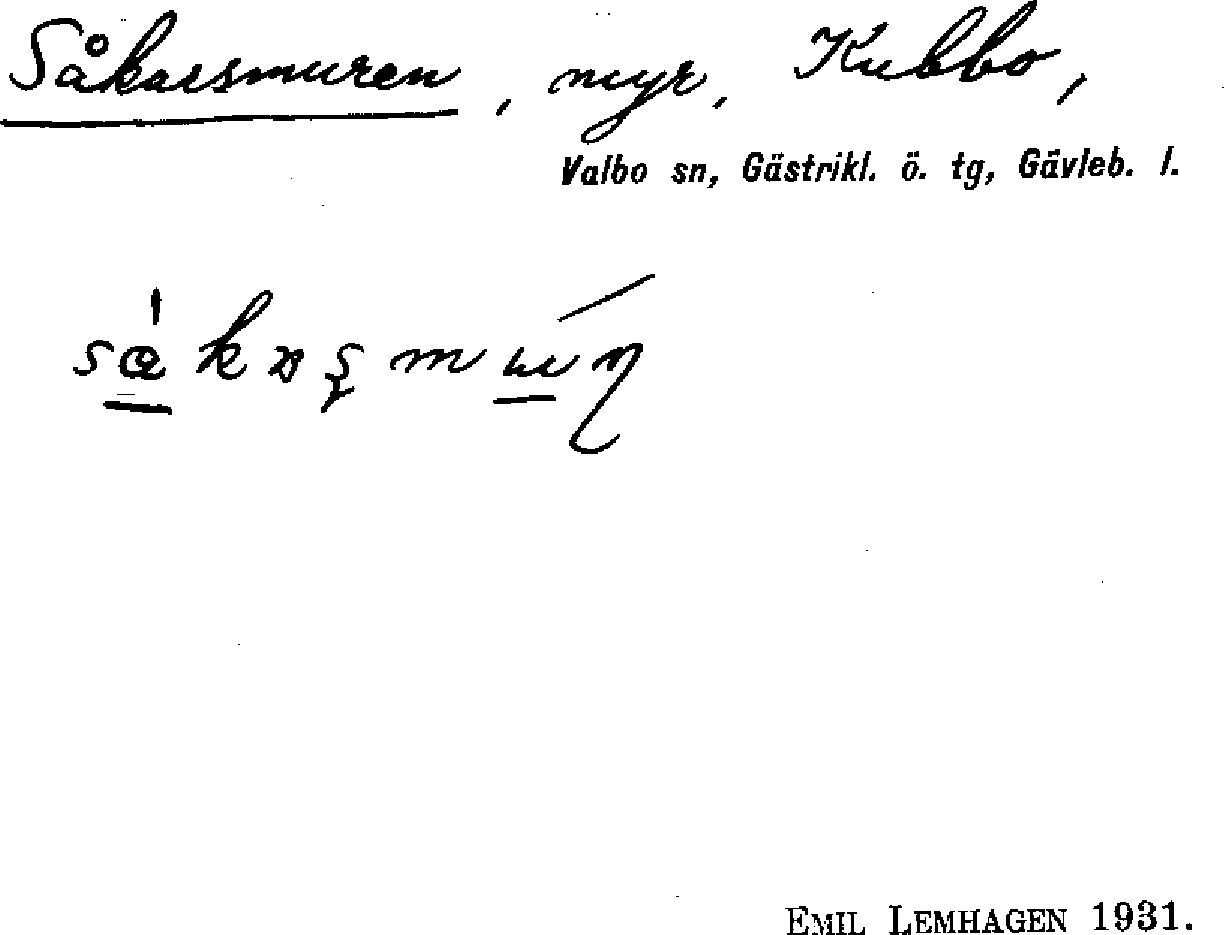 Såkarsmuren, myr, Kubbo,
Valbo sn, Gästrikl. ö. tg, Gävleb. l.
EMIL LEMHAGEN 1931.